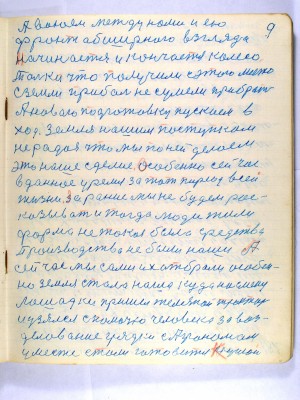 9
А вообщем между нами и ею
фронт обширного взгляда
Начинается и кончается колесо
Толка что получили с этого мало
С земли прибол не сумели прибрать
А нового подготовку пускаем в
ход. Земля нашим поступкам
не рада что мы по ней делаем
это наше сделие. Особенно сейчас
в данное время за тот период всей
жизни. За ранние мы не будем рас-
казывать и тогда люди жили
форма не такая была средства
производства не были наши А
сейчас мы сами их отобрали особен-
но земля стала наша куда на смену
лошадки пришел железной трактор
и взялся с помочю человека за воз-
делование грядки с Агрономом
уместе стали готовится